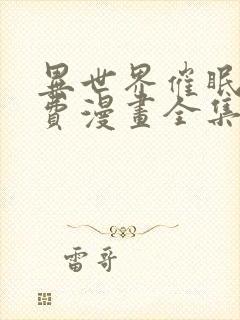 異世界催眠
費漫畫全集
雷哥